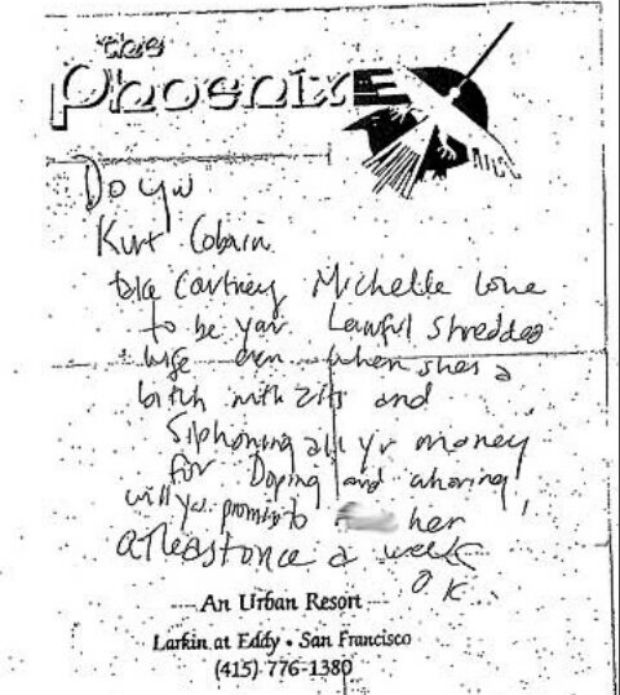 the
Phoenix
Do you
Kurt Cobain
take Cortney Michelle Love
to be your Lawful shredded
wife even when shes a
bitch with zits and
Siphoning all yr money
for Doping and whoring
will you promise to her
atleast once a week
O.K
An Urban Resort
Larkin at Eddy • San Francisco
(415) 776-1380